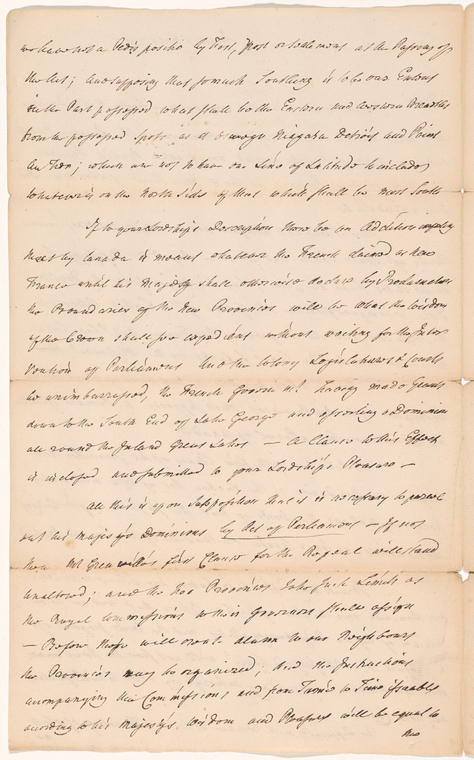 we have not a Pedis positio by Fort, Post or settlement at the Passing of
the Act; and supposing that so much Southing is to be our Extent
in the Part possessed what shall be the Eastern and Western Breadths
from the possessed Spots as at Oswego Niagara Detroit and Point
Au Fer; which are not to have one Line of Latitude to include
whatever is on the North Side of that which shall be most South
If to your Lordship's Description there be an Addition
that by Canada is meant whatever the French claimed as New
France until his Majesty shall otherwise declare by Proclamation
the Boundaries of the New Provinces will be what the Wisdom
of the Crown shall see expedient without waiting for the Inter
vention of Parliament and the Colony Legislatures & Courts
be unimbarrassed, the French Governmt having made Grants
down to the South End of Lake George and asserting a dominion
all round the Inland Great Lakes — A Clause to this Effect
is inclosed and submitted to your Lordship's Pleasure —
All this is upon Supposition that it is necessary to parcel
out his Majesty's Dominions by Act of Parliament — If not
then Mr Grenville's first Clause for the Repeal will stand
unaltered; and the two Provinces take such Limits as
the Royal Commissions to their Governors shall assign
— Before these will create alarm to our Neighbours
the Provinces may be organized; and the Instructions
accompanying the Commissions, and from Time to Time issuable
according to his Majesty's Wisdom and Pleasure will be equal to
the